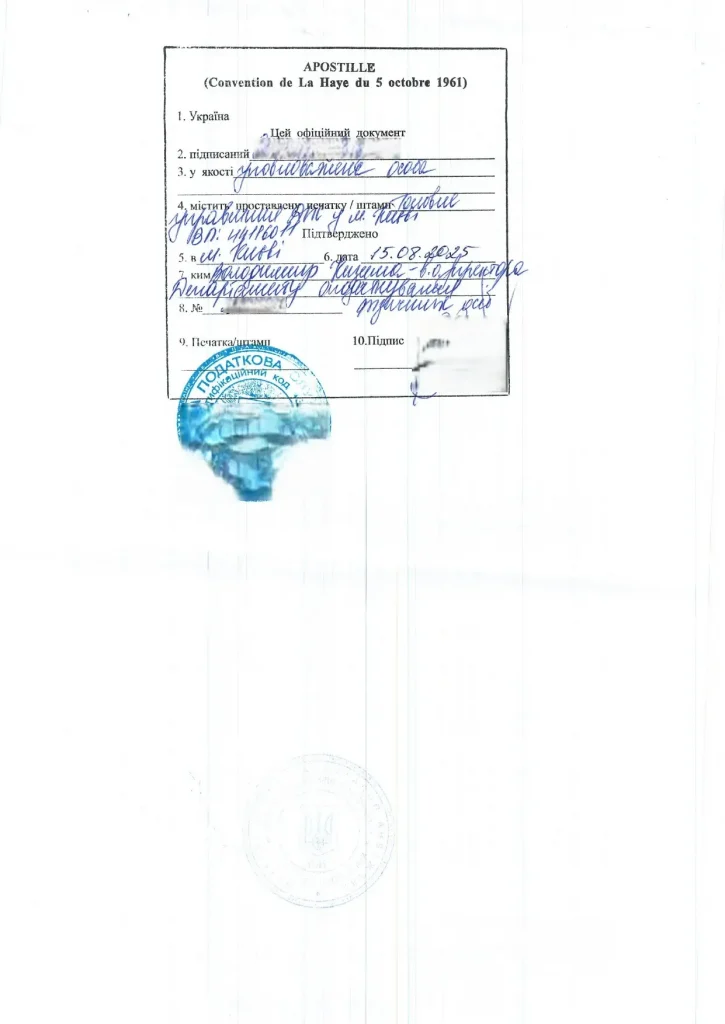 APOSTILLE
(Convention de La Haye du 5 octobre 1961)
1. Україна
Цей офіційний документ
2. підписаний
3. у якості уповноважена особа
4. містить проставлену печатку / штамп Головне
управління ДПС у м. Києві
ВП: 44116011 Підтверджено
5. в м. Києві 6. дата 15.08.2025
7. ким Володимир - в.о. директора
Департаменту оподаткування
фізичних осіб
8. №
9. Печатка/штамп 10.Підпис
ПОДАТКОВА
код